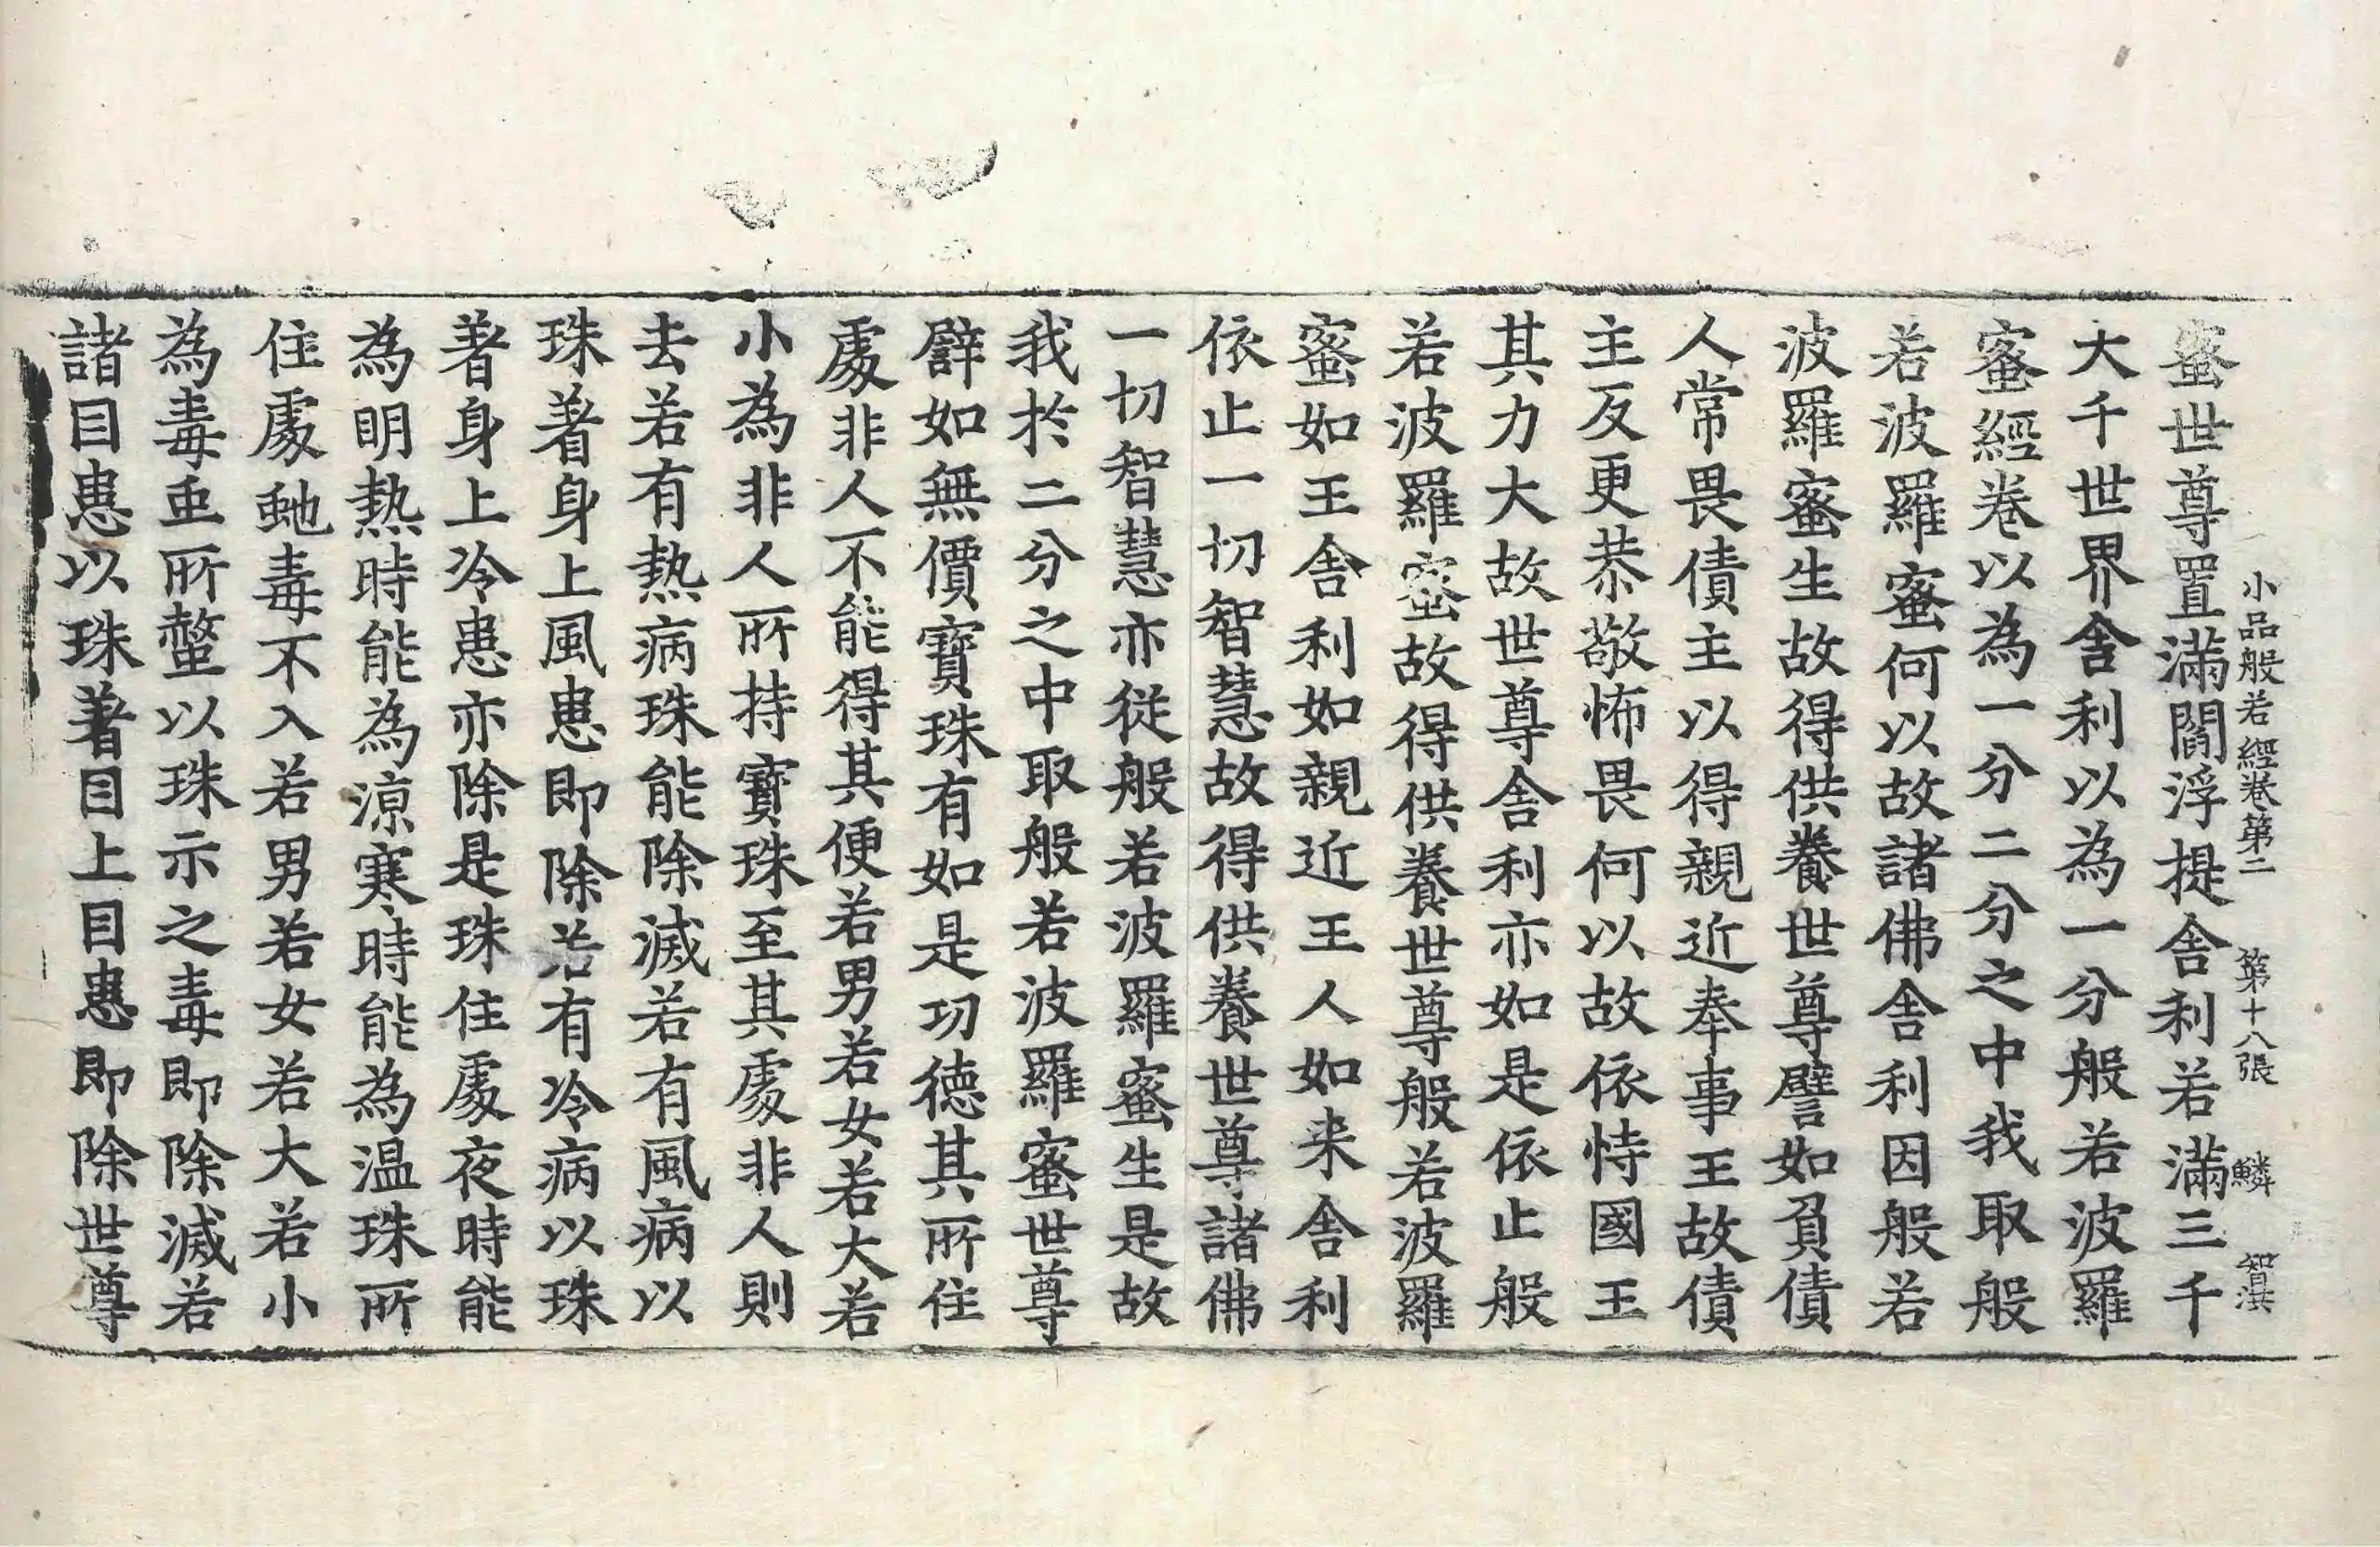 小品般若經卷第二　第十八張　鱗　智淇
蜜世尊置滿閻浮提舍利若滿三千
大千世界舍利以為一分般若波羅
蜜經卷以為一分二分之中我取般
若波羅蜜何以故諸佛舍利因般若
波羅蜜生故得供養世尊譬如負債
人常畏債主以得親近奉事王故債
主反更恭敬怖畏何以故依恃國王
其力大故世尊舍利亦如是依止般
若波羅蜜故得供養世尊般若波羅
蜜如王舍利如親近王人如来舍利
依止一切智慧故得供養世尊諸佛
一切智慧亦從般若波羅蜜生是故
我於二分之中取般若波羅蜜世尊
譬如無價寶珠有如是功德其所住
處非人不能得其便若男若女若大若
小為非人所持寶珠至其處非人則
去若有熱病珠能除滅若有風病以
珠著身上風患即除若有冷病以珠
著身上冷患亦除是珠住處夜時能
為明熱時能為涼寒時能為温珠所
住處虵毒不入若男若女若大若小
為毒虫所螫以珠示之毒即除滅若
諸目患以珠著目上目患即除世尊